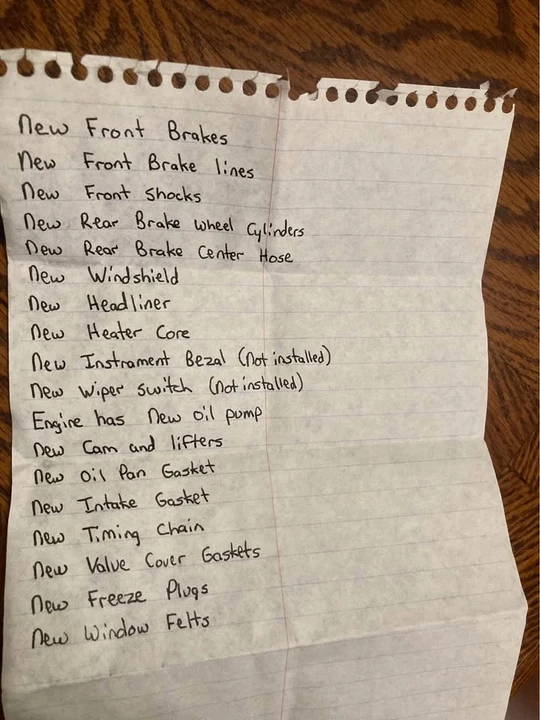 New Front Brakes
New Front Brake lines
New Front Shocks
New Rear Brake wheel Cylinders
New Rear Brake Center Hose
New Windshield
New Headliner
New Heater Core
New Instrament Bezal (Not installed)
New Wiper switch (Not installed)
Engine has New oil pump
New Cam and lifters
New Oil Pan Gasket
New Intake Gasket
New Timing Chain
New Valve Cover Gaskets
New Freeze Plugs
New Window Felts